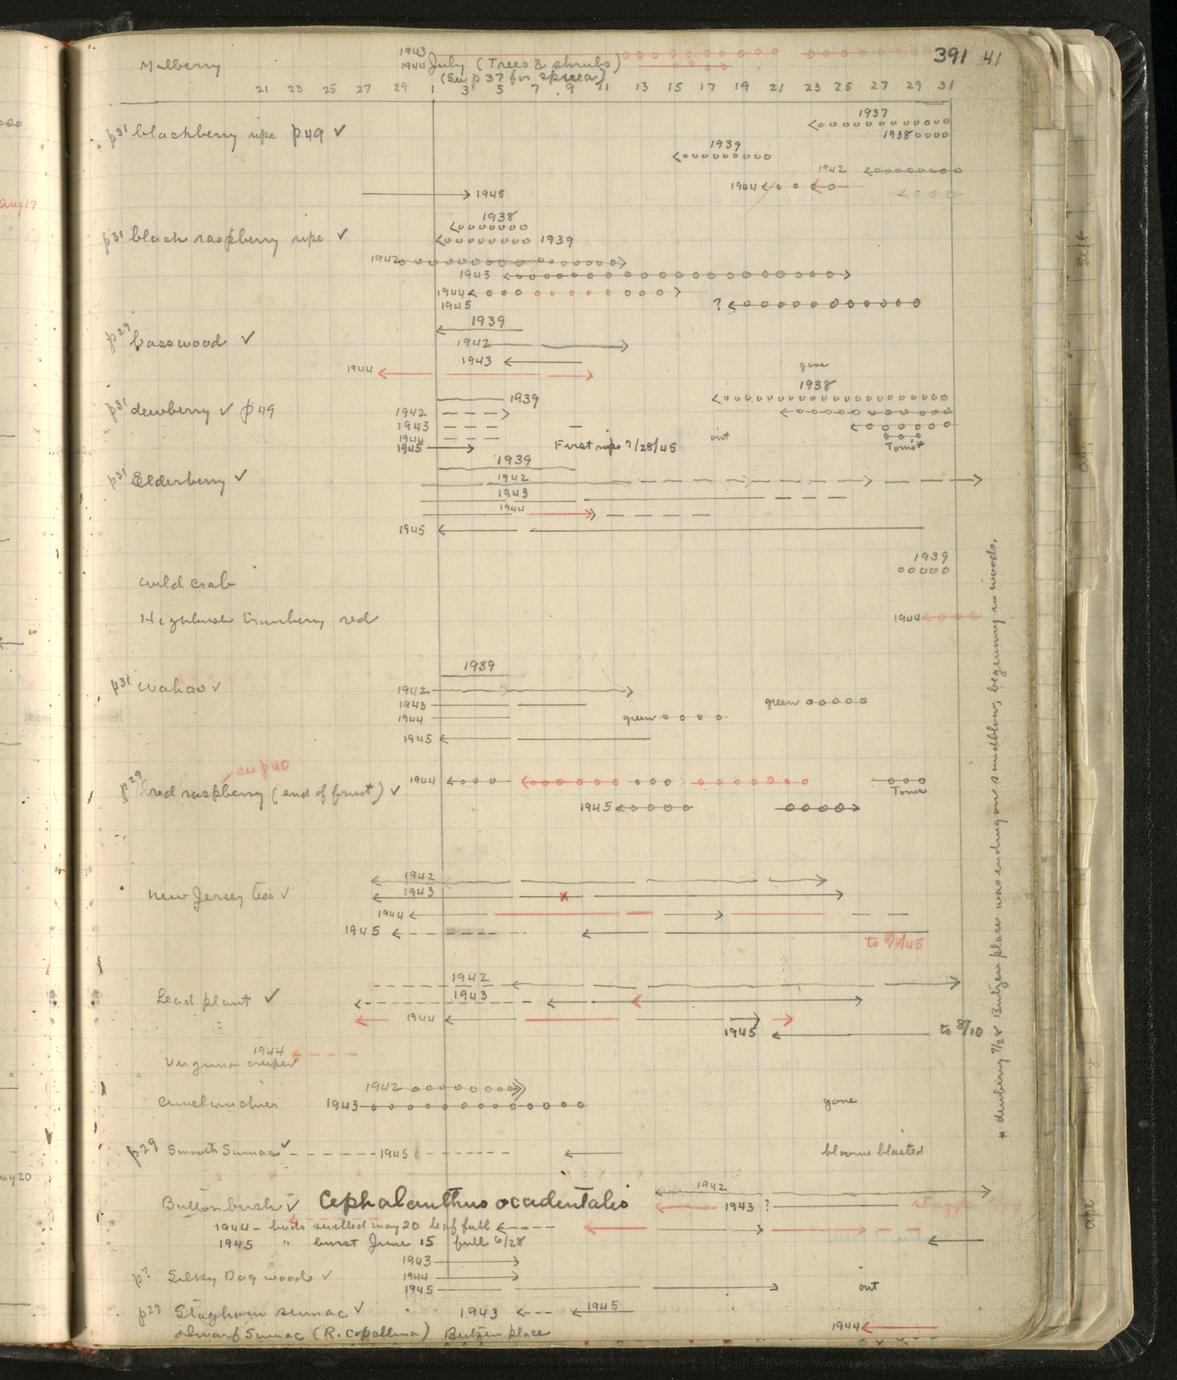 Mulberry 1943 391 41
1944 July (Trees & shrubs)
(See p 37 for spirea)
21 23 25 27 29 1 3 5 7 9 11 13 15 17 19 21 23 25 27 29 31
1937
p31 blackberry ripe p49 ✓ 1938
1939
1942
1944
1945
1938
p31 black raspberry ripe ✓ 1939
1942
1943
1944
1945 ?
1939
p29 basswood ✓ 1942
1943
1944 gone
1938
1939
p31 dewberry ✓ p49 1942
1943
1944 out
1945 First ripe 7/28/45 Tomis*
1939
p31 Elderberry ✓ 1942
1943
1944
1945
1939
wild crab
Highbush Cranberry red 1944
1939
p31 wahoo ✓ 1942
1943 green
1944 green
1945
see p40
p29 red raspberry (end of fruit) ✓ 1944
Tomis
1945
1942
New Jersey tea ✓ 1943 x
1944
1945 to 8/8/45
1942
Lead plant ✓ 1943
1944 1945 to 8/10
1944
Virginia creeper
1942
amelanchier 1943 gone
p29 Smooth Sumac ✓ 1945 blooms blasted
1942
Buttonbush ✓ Cephalanthus occidentalis 1943 ?
1944 - buds swelled may 20 leaf full
1945 " burst June 15 full 6/28
1943
p? Silky Dogwood ✓ 1944
1945 out
p29 Staghorn sumac ✓ 1943 1945
Dwarf Sumac (R. copallina) Butzen place 1944
* dewberry 7/28 Butzen place was ending on sandblow, beginning in woods.
Aug 17